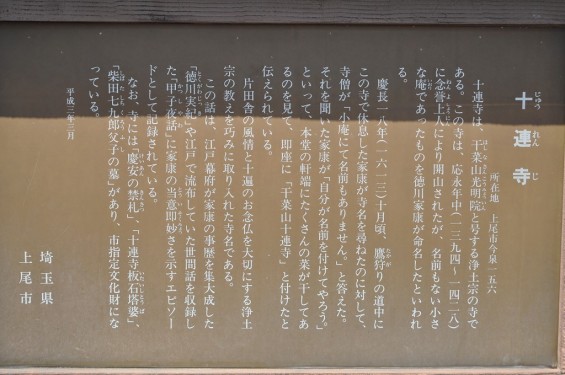 十連寺
所在地 上尾市今泉一五六
十連寺は、干菜山光明院と号する浄土宗の寺で
ある。この寺は、応永年中(一三九四～一四二八)
に念誉上人により開山されたが、名前もない小さ
な庵であったものを徳川家康が命名したといわれ
る。
慶長一八年(一六一三)十月頃、鷹狩りの道中に
この寺で休息した家康が寺名を尋ねたのに対して、
寺僧が「小庵にて名前もありません。」と答えた。
それを聞いた家康が「自分が名前を付けてやろう。」
といって、本堂の軒端にたくさんの菜が干してあ
るのを見て、即座に「干菜山十連寺」と付けたと
伝えられている。
片田舎の風情と十遍のお念仏を大切にする浄土
宗の教えを巧みに取り入れた寺名である。
この話は、江戸幕府が家康の事歴を集大成した
「徳川実紀」や江戸で流布していた世間話を収録し
た「甲子夜話」に家康の当意即妙さを示すエピソー
ドとして記録されている。
なお、寺には「慶安の禁札」、「十連寺板石塔婆」、
「柴田七九郎父子の墓」があり、市指定文化財にな
っている。
平成三年三月
埼玉県
上尾市